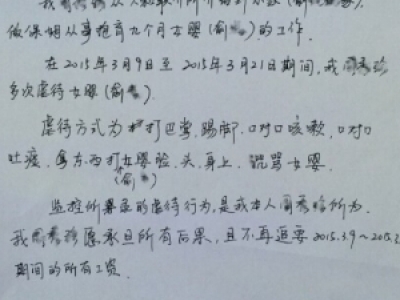 做保姆从事抱育九个月女婴(俞)的工作.
在2015年3月9日至2015年3月21日期间,我周秀珍
多次虐待女婴(俞).
虐待方式为打巴掌,踢脚.口对口咳嗽,口对口
吐痰.拿东西打女婴脸.头.身上.诡骂女婴.
(俞)
监控所暴露的虐待行为,是我本人周秀珍所为.
我周秀珍愿承担所有后果,且不再追要2015.3.9~2015.3
期间的所有工资.